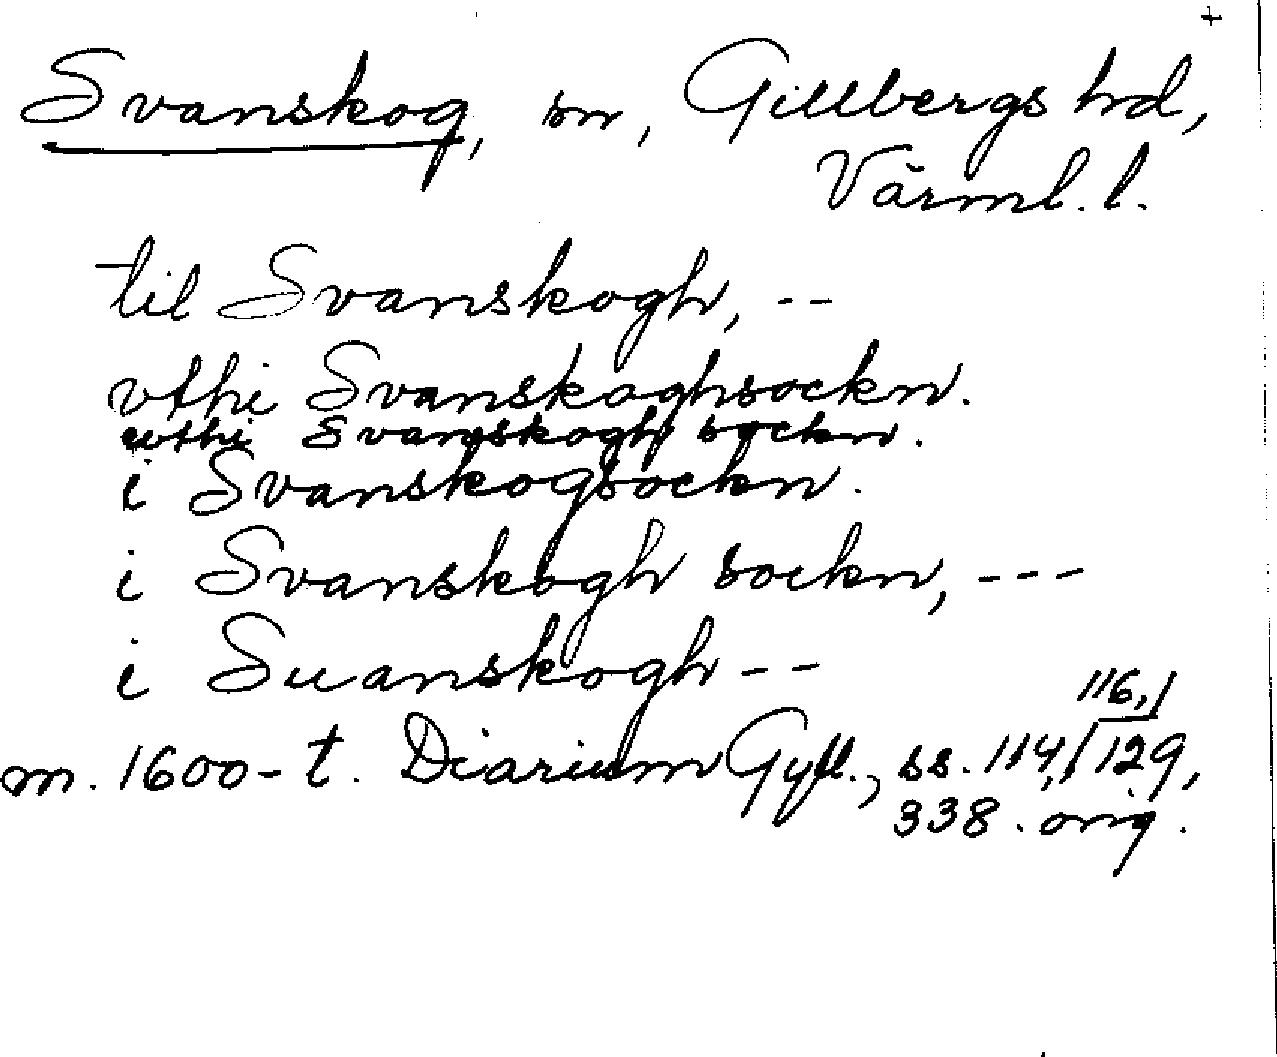 +
Svanskog, sn, Gillbergs hd,
Värml. l.
til Svanskogh, --
vthi Svanskoghsockn.
wthi Svanskogh sockn.
i Svanskogsockn.
i Svanskogh sockn, ---
i Suanskogh --
116,
m. 1600-t. Diarium Gyll., ss. 114, 129,
338. orig.